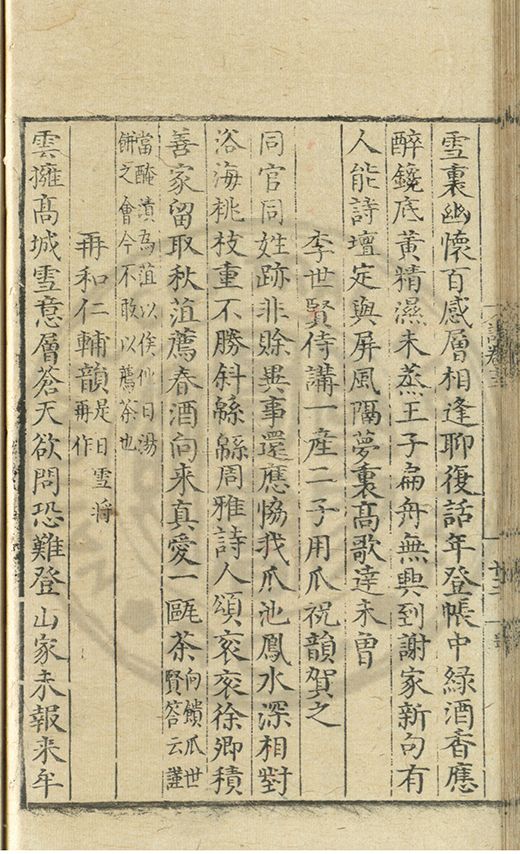 雪裏幽懷百感層相逢聊復話年登帳中緑酒香應
醉鑱底黄精濕未蒸王子扁舟無興到謝家新句有
人能詩壇定與屏風隔夢裏髙歌達未曾
李世賢侍講一産二子用爪祝韻賀之
同官同姓跡非賖異事還應恊我爪池鳳水深相對
浴海桃枝重不勝斜緜緜周雅詩人頌衮衮徐卿積
善家留取秋菹薦春酒向来真愛一甌茶向饋爪世賢答云謹
當醃漬為菹以俟他日湯餅之會今不敢以薦茶也
再和仁輔韻是日雪将再作
雲擁髙城雪意層蒼天欲問恐難登山家未報来牟